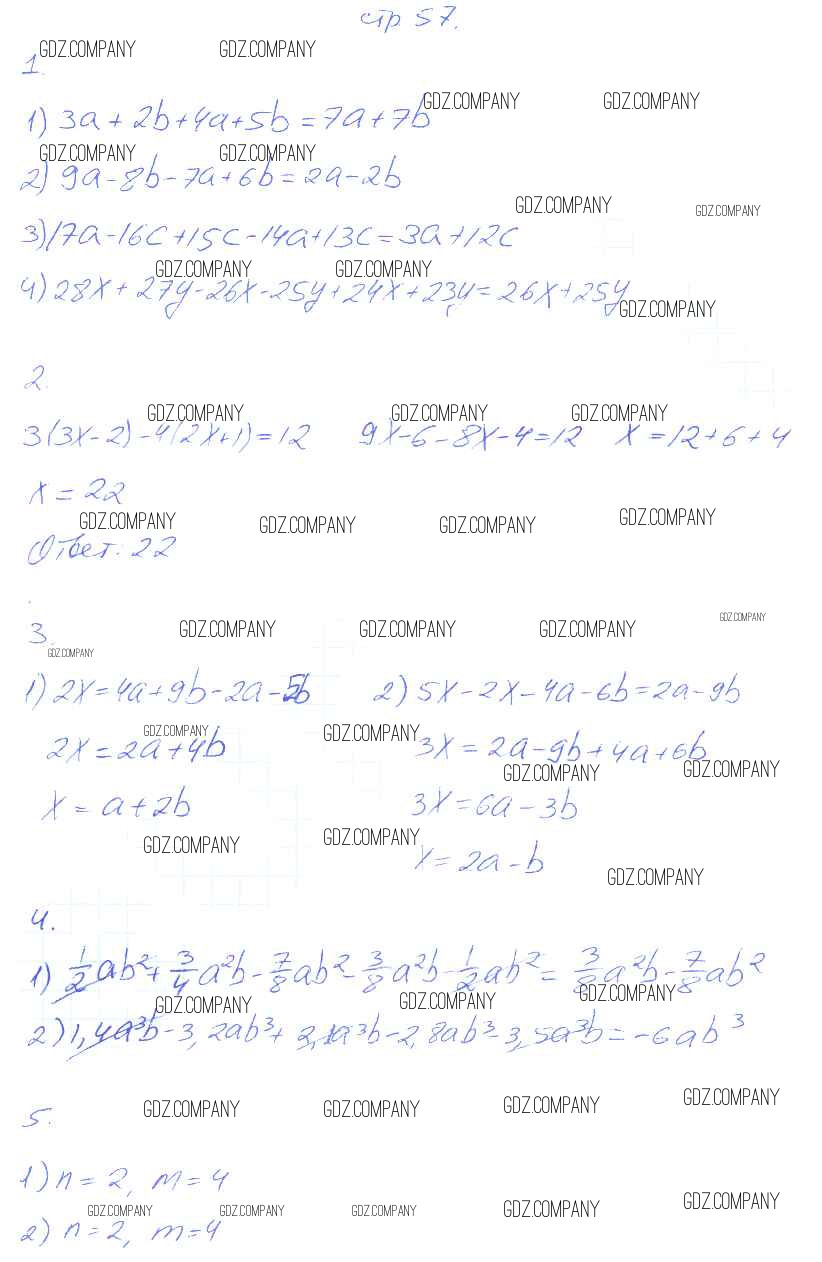 стр 57.
GDZ.COMPANY GDZ.COMPANY
1.
GDZ.COMPANY GDZ.COMPANY
1) 3a + 2b + 4a + 5b = 7a + 7b
GDZ.COMPANY GDZ.COMPANY
2) 9a - 8b - 7a + 6b = 2a - 2b
GDZ.COMPANY GDZ.COMPANY
3) 17a - 16c + 15c - 14a + 13c = 3a + 12c
GDZ.COMPANY GDZ.COMPANY
4) 28x + 27y - 26x - 25y + 24x + 23y = 26x + 25y
GDZ.COMPANY
2.
GDZ.COMPANY GDZ.COMPANY GDZ.COMPANY
3(3x - 2) - 4(2x + 1) = 12 9x - 6 - 8x - 4 = 12 x = 12 + 6 + 4
x = 22
GDZ.COMPANY GDZ.COMPANY GDZ.COMPANY GDZ.COMPANY
Ответ: 22
GDZ.COMPANY GDZ.COMPANY GDZ.COMPANY GDZ.COMPANY
3.
GDZ.COMPANY
1) 2x = 4a + 9b - 2a - 5b 2) 5x - 2x - 4a - 6b = 2a - 9b
GDZ.COMPANY GDZ.COMPANY
2x = 2a + 4b 3x = 2a - 9b + 4a + 6b
GDZ.COMPANY GDZ.COMPANY
x = a + 2b 3x = 6a - 3b
GDZ.COMPANY GDZ.COMPANY
x = 2a - b
GDZ.COMPANY
4.
1) 1/2 ab² + 3/4 a²b - 7/8 ab² - 3/8 a²b - 1/2 ab² = 3/8 a²b - 7/8 ab²
GDZ.COMPANY GDZ.COMPANY GDZ.COMPANY
2) 1,4a³b - 3,2ab³ + 2,1a³b - 2,8ab³ - 3,5a³b = -6ab³
GDZ.COMPANY GDZ.COMPANY GDZ.COMPANY GDZ.COMPANY
5.
1) n = 2, m = 4
GDZ.COMPANY GDZ.COMPANY GDZ.COMPANY GDZ.COMPANY GDZ.COMPANY
2) n = 2, m = 4